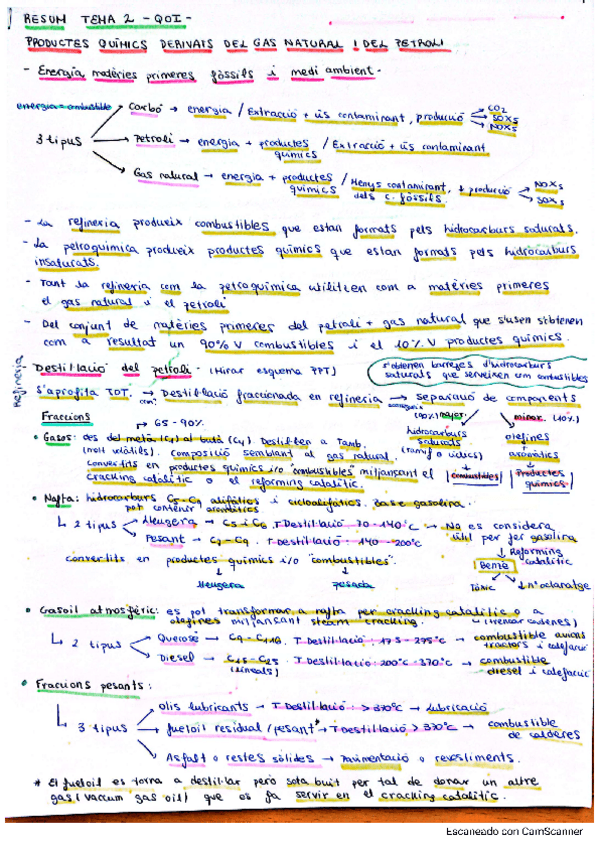 RESUM TEMA 2 - QOI -
PRODUCTES QUÍMICS DERIVATS DEL GAS NATURAL I DEL PETROLI
- Energia matèries primeres fòssils i medi ambient.
energia = combustible
3 tipus
Carbó → energia / Extracció + ús contaminant, producció
CO2
SOXs
NOXs
Petroli → energia + productes químics / Extracció + ús contaminant
Gas natural → energia + productes químics / Menys contaminant, ↓ producció
dels c. fòssils.
NOXs
SOXs
- La refineria produeix combustibles que estan formats pels hidrocarburs saturats.
- La petroquímica produeix productes químics que estan formats pels hidrocarburs
insaturats.
- Tant la refineria com la petroquímica utilitzen com a matèries primeres
el gas natural i el petroli
- Del conjunt de matèries primeres del petroli + gas natural que s'usen s'obtenen
com a resultat un 90% V combustibles i el 10% V productes químics
Refineria
Destil·lació del petroli. (Mirar esquema PPT)
s'obtenen barreges d'hidrocarburs
saturats que serveixen com combustibles
S'aprofita TOT. → Destil·lació fraccionada en refineria → separació de components
Fraccions
→ 65 - 90%
(90%) major.
minor. (10%)
hidrocarburs
saturats
olefines
aromàtics
combustibles
Productes
químics
• Gasos: des del metà (C1) al butà (C4). Destil·len a Tamb.
(molt volàtils). Composició semblant al gas natural.
Convertits en productes químics i/o "combustibles" mitjançant el
cracking catalític o el reforming catalític.
• Nafta: hidrocarburs C5 - C9 alifàtics i cicloalifàtics. Base gasolina.
pot contenir aromàtics
↳ 2 tipus
Lleugera → C5 i C6 T Destil·lació 70 - 140°C → No es considera
útil per fer gasolina
Pesant → C7 - C9. T Destil·lació: 140 - 200°C
↓ Reforming
catalític
Benzè
Tòxic
↓ nº octanatge
convertits en productes químics i/o "combustibles".
lleugera
pesada
• Gasoil atmosfèric: es pot transformar a nafta per cracking catalític o a
olefines mitjançant steam cracking.
(trencar cadenes)
↳ 2 tipus
Querosè → C9 - C16. T Destil·lació: 175 - 275°C → combustible avions
tractors i calefacció
Diesel → C15 - C25. T Destil·lació: 200°C - 370°C → combustible
(lineals)
diesel i calefacció
• Fraccions pesants:
↳ 3 tipus
olis lubricants → T Destil·lació: > 370°C → Lubricació
fueloil residual / pesant* → T Destil·lació > 370°C → combustible
de calderes
Asfalt o restes sòlides → Pavimentació o revestiments.
* El fueloil es torna a destil·lar però sota buit per tal de donar un altre
gas (vaccum gas oil) que es fa servir en el cracking catalític.
Escaneado con CamScanner